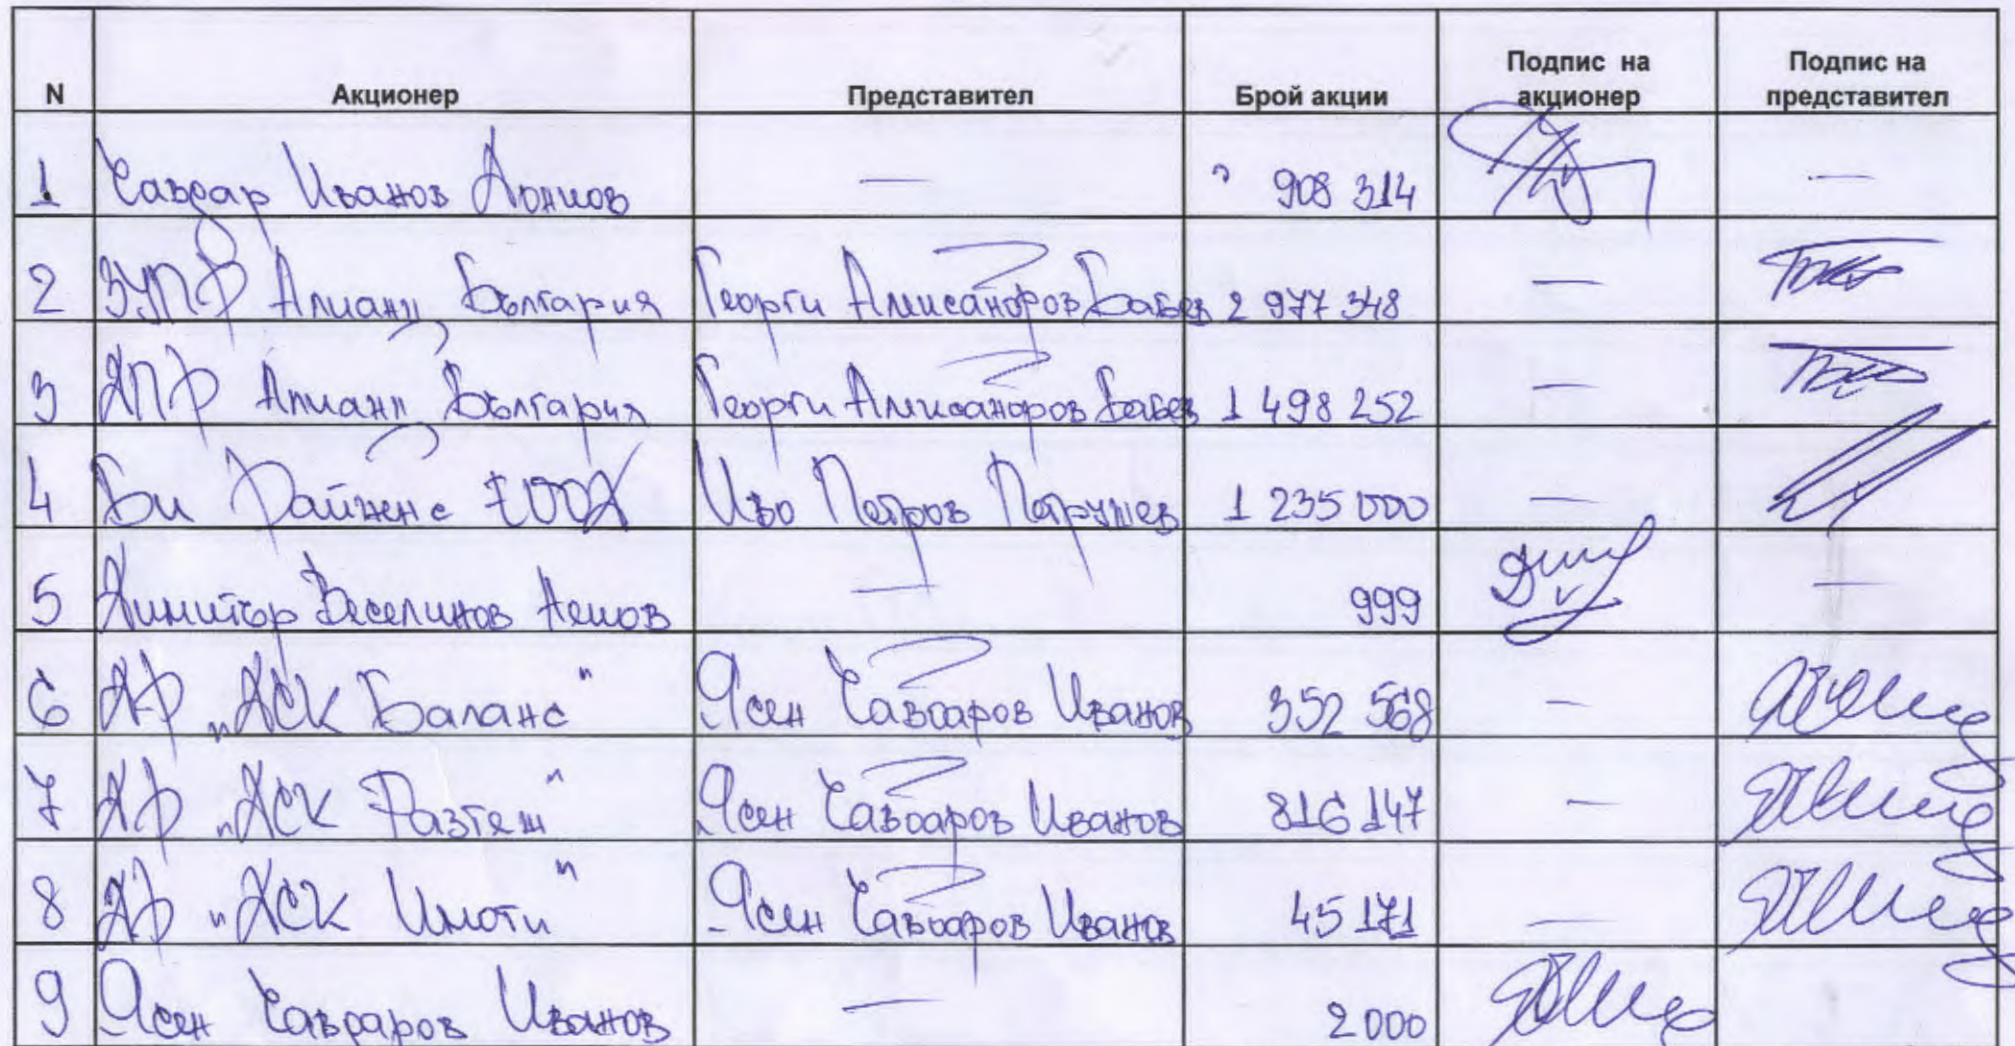 N Акционер Представител Брой акции Подпис на акционер Подпис на представител
1 Чавдар Иванов — 908 314 —
2 ЗУПФ Алианц България Георги Александров Бабев 2 977 348 —
3 ДПФ Алианц България Георги Александров Бабев 1 498 252 —
4 Би Файненс ЕООД Иво Петров Петрушев 1 235 000 —
5 Димитър Веселинов — 999 —
6 ДФ „ДСК Баланс" Ясен Чавдаров Иванов 352 568 —
7 ДФ „ДСК Растеж" Ясен Чавдаров Иванов 816 147 —
8 ДФ „ДСК Имоти" Ясен Чавдаров Иванов 45 171 —
9 Ясен Чавдаров Иванов — 2000